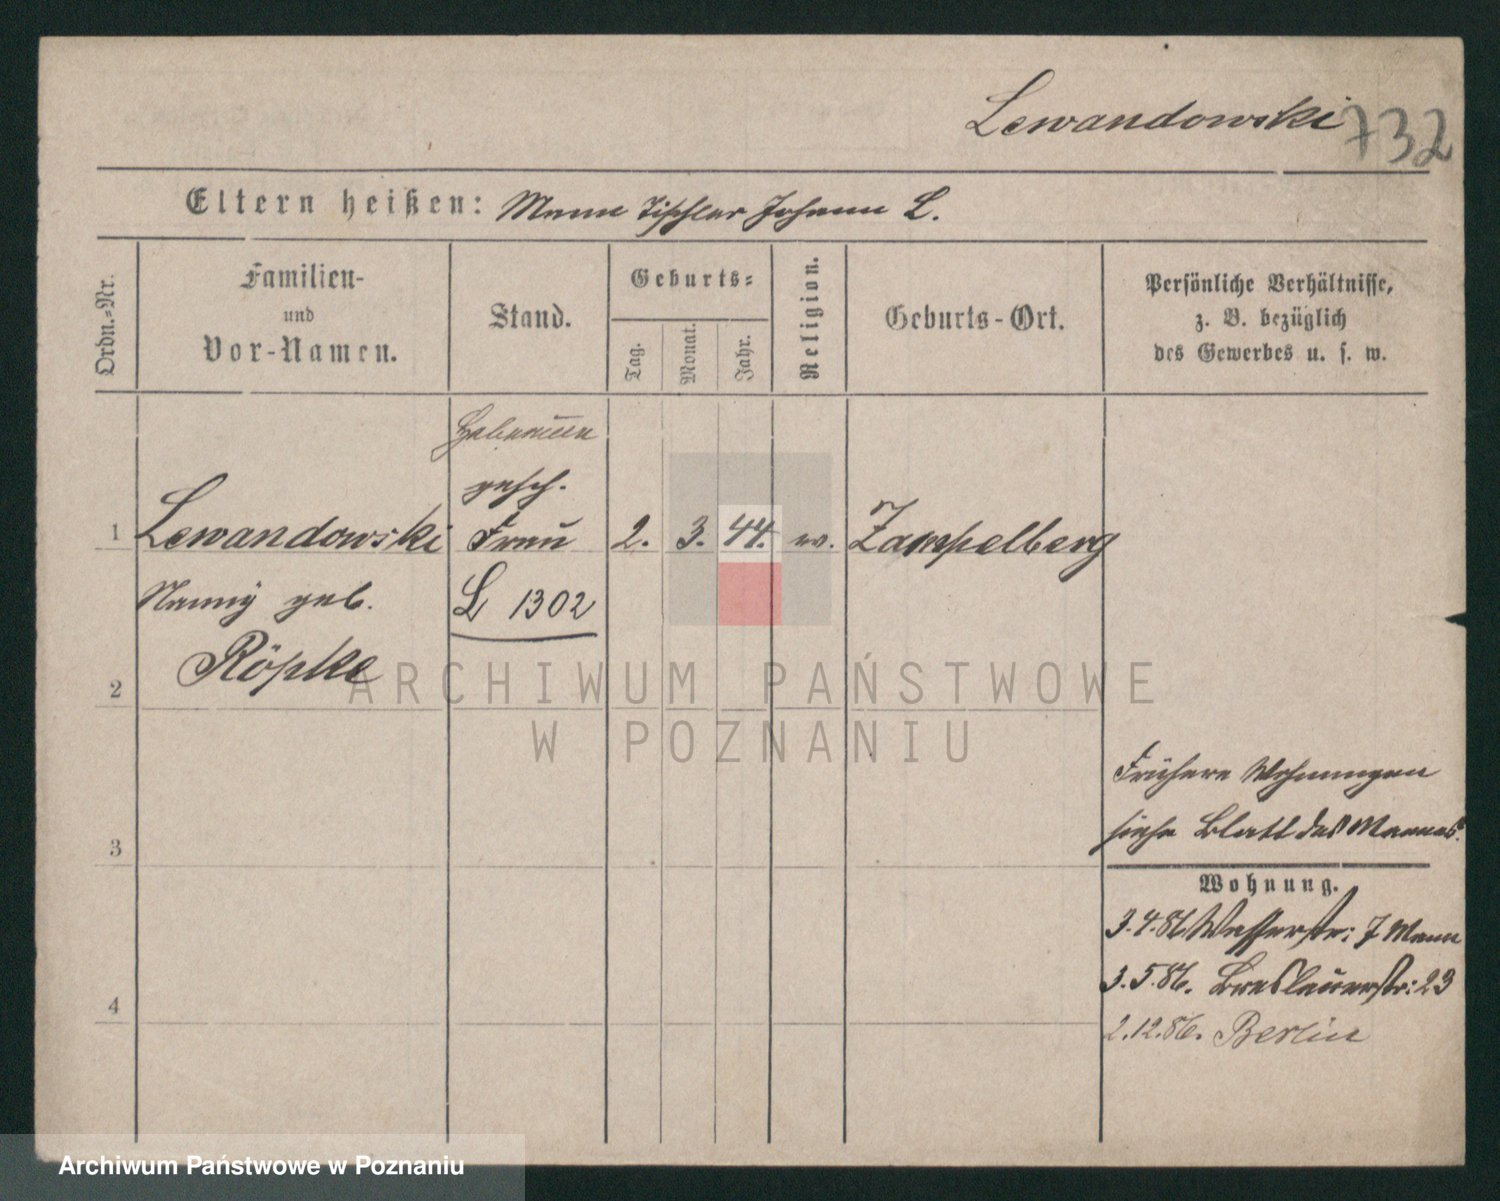 Lewandowski 732
Eltern heißen: Mann Tischler Johann L.
Ordn.-Nr.
Familien-
und
Vor-Namen.
Stand.
Geburts-
Tag.
Monat.
Jahr.
Religion.
Geburts-Ort.
Persönliche Verhältnisse,
z. B. bezüglich
des Gewerbes u. s. w.
gesch.
1 Lewandowski Frau 2. 3. 44. ev. Zempelberg
Nanny geb. L 1302
Röpke
2
ARCHIWUM PAŃSTWOWE
W POZNANIU
Frühere Wohnungen
siehe Blatt des Mannes.
3
Wohnung.
3.4.86 Wasserstr: 7 Mann
3.5.86. Breslauerstr: 23
4
2.12.86. Berlin
Archiwum Państwowe w Poznaniu